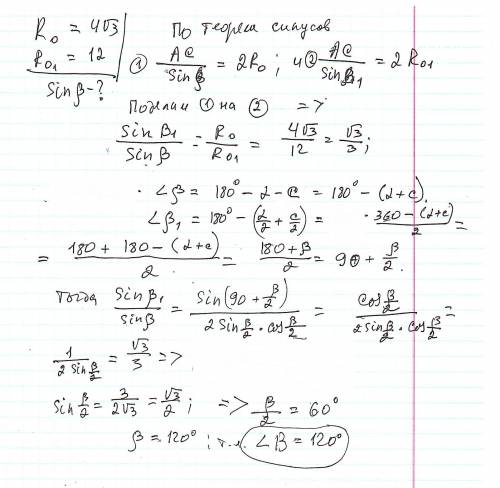 R₀ = 4√3
R₀₁ = 12
Sinβ-?
По теореме синусов
① AC/Sinβ = 2R₀; и ② AC/Sinβ₁ = 2R₀₁
Поделим ① на ② =>
Sinβ₁/Sinβ = R₀/R₀₁ = 4√3/12 = √3/3;
∠β = 180° - α - C = 180° - (α+c).
∠β₁ = 180° - (α/2 + c/2) = 360 - (α+c)/2 =
= 180 + 180 - (α+c)/2 = 180+β/2 = 90 + β/2.
Тогда Sinβ₁/Sinβ = Sin(90 + β/2)/2Sinβ/2 · cosβ/2 = cosβ/2/2sinβ/2 · cosβ/2 =
1/2sinβ/2 = √3/3 =>
Sinβ/2 = 3/2√3 = √3/2; => β/2 = 60°
β = 120°; ∠B = 120°